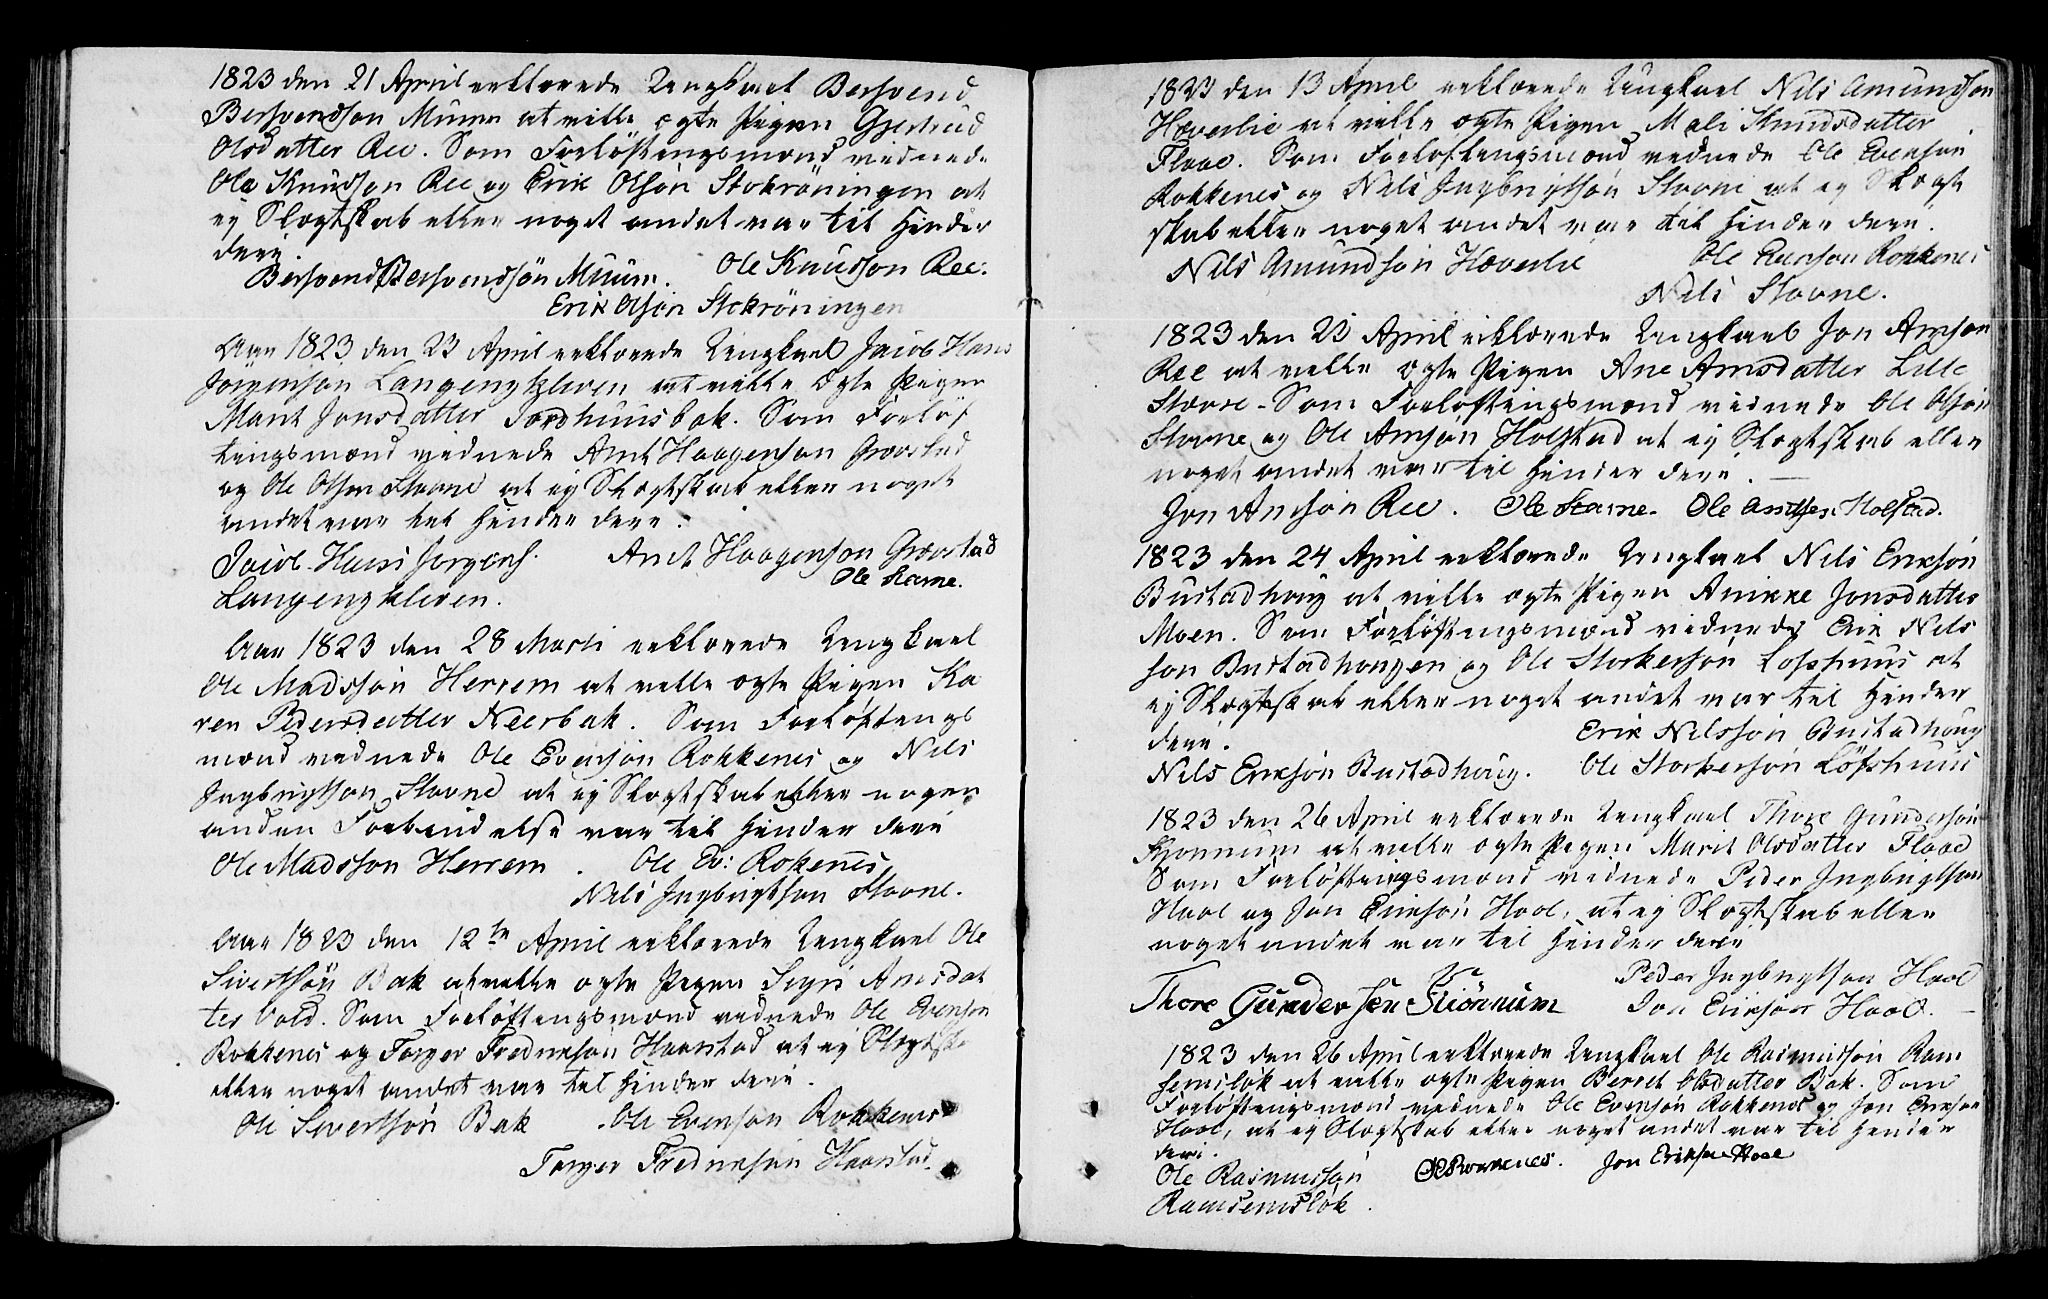 1823 den 21 April erklærede Ungkael Bersvend
Bersvendson Muum at ville ægte Pigen Gjertrud
Olsdatter Ree. Som Forløftingsmænd vidnede
Ole Knudson Ree og Erik Olsøn Stokrøningen at
ej Slægtskab eller noget andet var til Hinder
deri.
Bersvend Bersvendsøn Muum. Ole Knudson Ree.
Erik Olsøn Stokrøningen
Aar 1823 den 23 April erklærede Ungkael Jacob Hans
Jörgensøn Langengkleven at ville ægte Pigen
Marit Jonsdatter Jordhuusbak. Som Forløf
tingsmænd vidnede Arnt Haagenson Grøvstad
og Ole Olsen Stavne at ej Slægtskab eller noget
andet var til Hinder deri.
Jacob Hans Jørgens. Arnt Haagenson Grøvstad
Ole Stavne.
Langengkleven.
Aar 1823 den 28 Marti erklærede Ungkael
Ole Madsson Herrem at ville ægte Pigen Ka
ren Pedersdatter Neerbak. Som Forløftings
mænd vidnede Ole Evensøn Rokkenes og Nils
Ingbrigtson Stavne at ej Slægtskab eller nogen
anden Forbindelse var til Hinder deri
Ole Madsson Herrem. Ole Ev: Rokenes
Nils Ingbrigtson Stavne.
Aar 1823 den 12te April erklærede Ungkael Ole
Sivertsøn Bak at ville ægte Pigen Sigri Arnsdat
ter Vold. Som Forløftingsmænd vidnede Ole Evenson
Rokkenes og Torger Fredrikson Haarstad at ej Slægtsk
eller noget andet var til Hinder deri.
Ole Sivertsøn Bak. Ole Evenson Rokkenes
Torger Fredrikson Haarstad.
1823 den 13 April erklærede Ungkael Nils Amundson
Hæverlie at ville ægte Pigen Mali Knudsdatter
Flaae. Som Forløftingsmænd vidnede Ole Evensøn
Rokkenes og Nils Ingbrigtsøn Stavne at ej Slægt
skab eller noget andet var til Hinder deri.
Nils Amundsøn Hæverlie Ole Evenson Rokkenes
Nils Stavne.
1823 den 23 April erklærede Ungkael Jon Arnson
Ree at ville ægte Pigen Ane Arnsdatter Lille
Stavne. Som Forløftingsmænd vidnede Ole Olsøn
Stavne og Ole Arnsøn Holstad at ej Slægtskab eller
noget andet var til Hinder deri.
Jon Arnsøn Ree. Ole Stavne. Ole Holstad.
1823 den 24 April erklærede Ungkael Nils Eriksøn
Bustadhoug at ville ægte Pigen Anikke Jonsdatter
Moen. Som Forløftingsmænd vidnede Erik Nils
son Bustadhougen og Ole Storkersøn Løfshuus at
ej Slægtskab eller noget andet var til Hinder
deri. Erik Nilssøn Bustadhoug
Nils Eriksøn Bustadhoug. Ole Storkersøn Løfshuus
1823 den 26 April erklærede Ungkael Thore Gundersøn
Kjønnum at ville ægte Pigen Marit Olsdatter Flaae
Som Forløftingsmænd vidnede Peder Ingbrigtson
Hool og Jon Erikson Hool, at ej Slægtskab eller
noget andet var til Hinder deri
Peder Ingbrigtson Hool
Thore Gundersen Kiönnum Jon Erikson Hool.
1823 den 26 April erklærede Ungkael Ole Rasmussøn Ram
semsløk at ville ægte Pigen Berrit Olsdatter Bak. Som
Forløftingsmænd vidnede Ole Evensøn Rokkenes og Jon Erikson
Hool, at ej Slægtskab eller noget andet var til Hinder
deri.
Ole Rasmussøn OERokkenes. Jon Erikson Hool
Ramsemsløk.